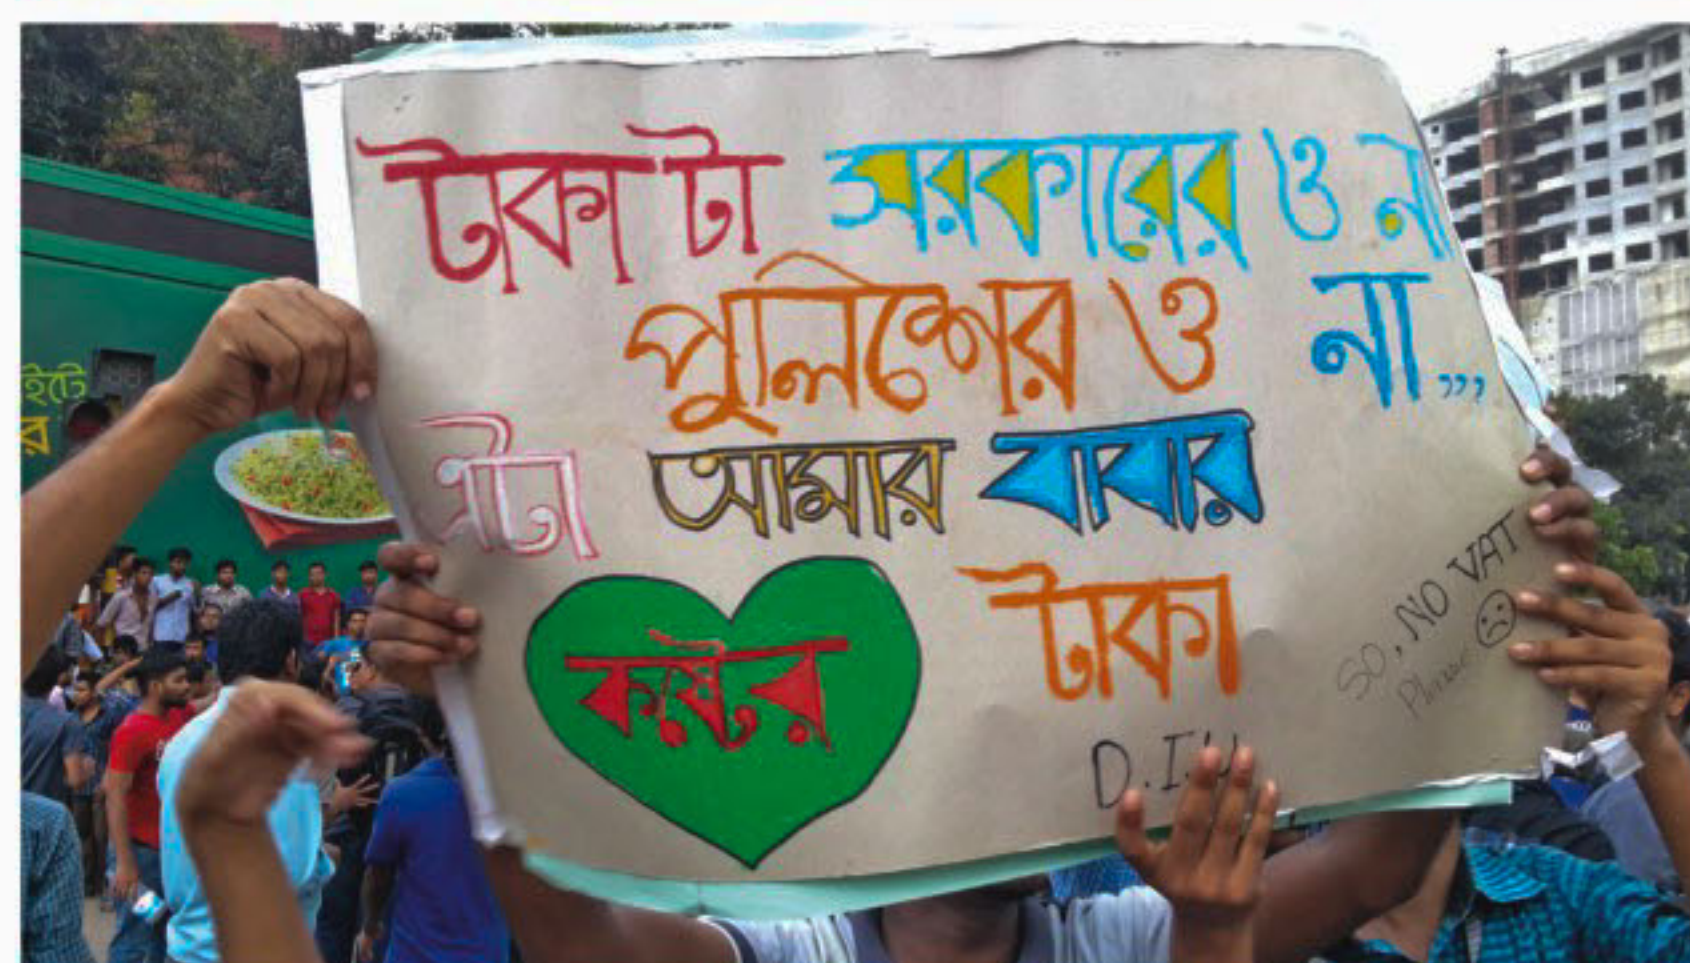 টাকা টা সরকারের ও না
পুলিশের ও না,,,
এটা আমার বাবার
কষ্টের টাকা
SO, NO VAT
Please
D.I.U
ইটে
র